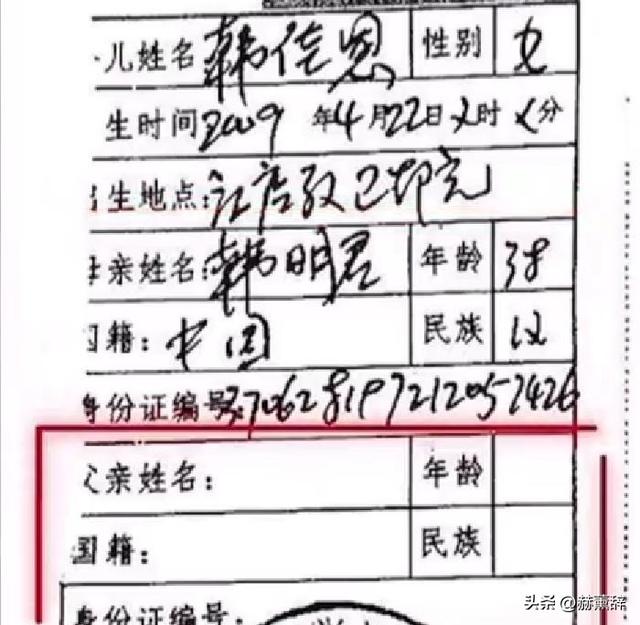 儿姓名 韩佳恩 性别 女
生时间 2009 年4月22日X时X分
生地点:
亲姓名: 韩明君 年龄 38
国籍: 中国 民族 汉
身份证编号: 370628197212052426
父亲姓名: 年龄
国籍: 民族
身份证编号:
头条 @赫薰辞